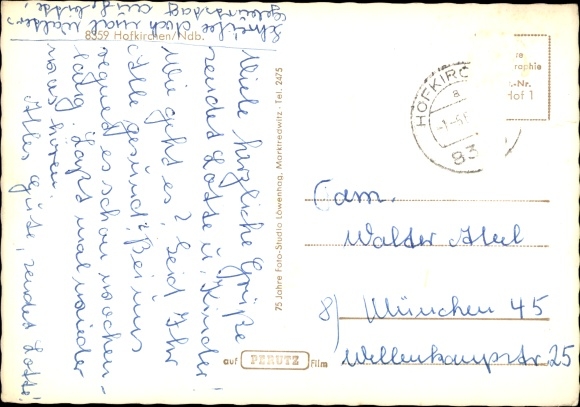 8359 Hofkirchen/Ndb.
Schreibe doch mal Walters
Geburtstag auf, bitte,
Viele herzliche Grüße
sendet Lotte u. Kinder!
Wie geht es? Seid Ihr
Alle gesund? Bei uns
regnet es schon wochen-
lang. Laßt mal wieder
was hören.
Alles Gute, sendet Lotte!
75 Jahre Foto-Studio Löwenhag, Marktredwitz · Tel. 2475
auf PERUTZ Film
re
raphie
-Nr.
Hof 1
HOFKIRC
a
-1.-6
83
Fam.
Walter
8) München 45
Wellenkampstr. 25